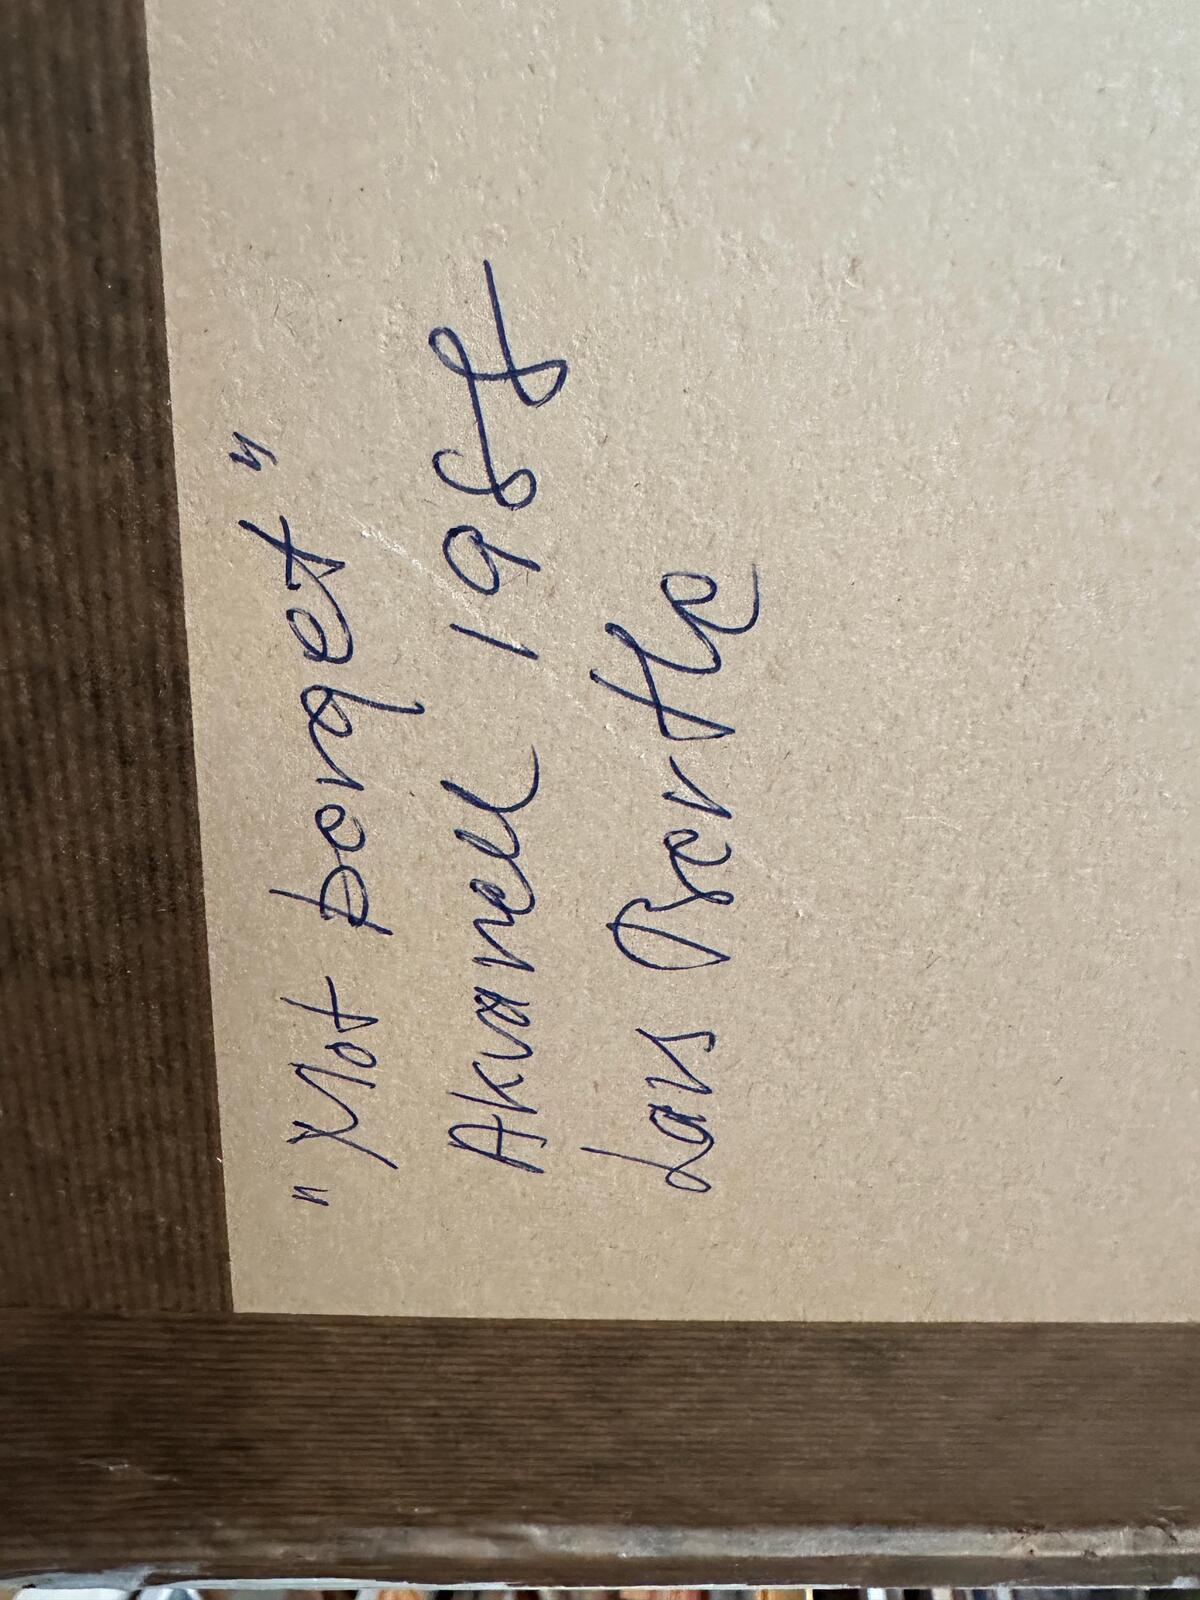 "Mot berget"
Akvarell 1988
Lars Berthe